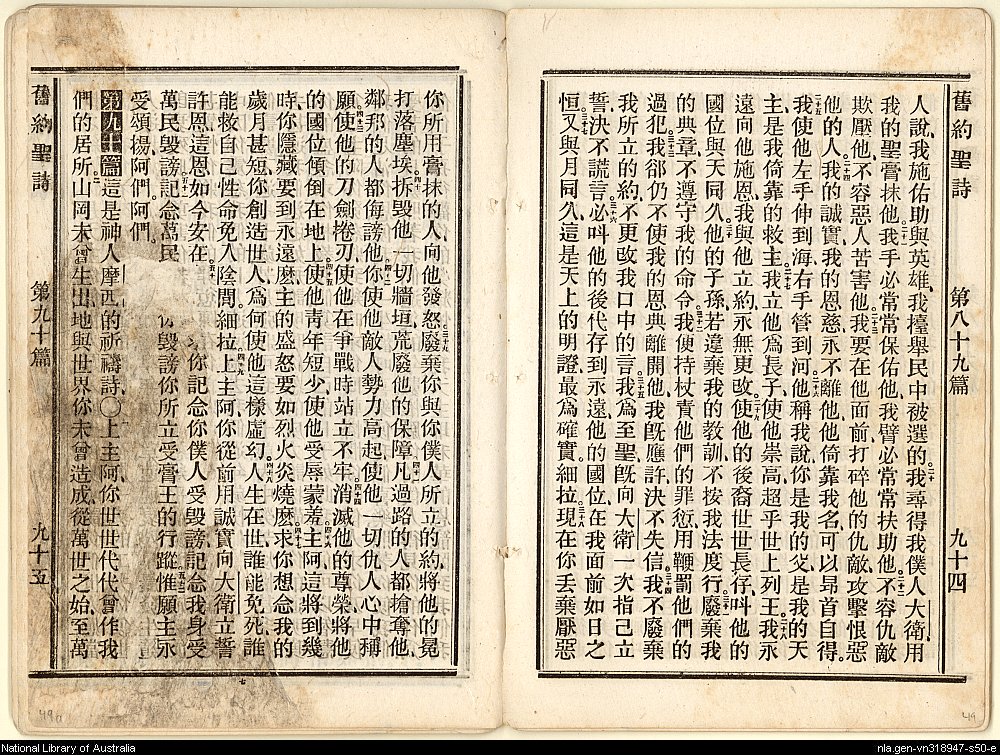 舊約聖詩 第八十九篇 九十四
人說、我施佑助與英雄、我擡舉民中被選的、二十我尋得我僕人大衛、用
我的聖膏抹他、二十一我手必常常保佑他、我臂必常常扶助他、二十二不容仇敵
欺壓他、不容惡人苦害他、二十三我要在他面前打碎他的仇敵、攻擊恨惡
他的人、二十四我的誠實、我的恩慈、永不離他、他倚靠我名、可以昂首自得。
二十五我使他左手伸到海、右手管到河、二十六他稱我說、你是我的父、是我的天
主、是我倚靠的救主、二十七我立他爲長子、使他崇高超乎世上列王、二十八我永
遠向他施恩、我與他立約、永無更改、二十九使他的後裔世世長存、叫他的
國位與天同久、三十他的子孫若違棄我的教訓、不按我法度行、三十一廢棄我
的典章、不遵守我的命令、三十二我便持杖責他們的罪愆、用鞭罰他們的
過犯、三十三我卻仍不使我的恩典離開他、我旣應許、決不失信、三十四我不廢棄
我所立的約、不更改我口中的言、三十五我爲至聖、旣向大衛一次指己立
誓、決不謊言、三十六必叫他的後代存到永遠、他的國位、在我面前如日之
恒、三十七又與月同久、這是天上的明證、最爲確實、細拉、三十八現在你丟棄厭惡
你所用膏抹的人、向他發怒、三十九廢棄你與你僕人所立的約、將他的冕
打落塵埃、四十拆毀他一切牆垣、荒廢他的保障、四十一凡過路的人都搶奪他、
鄰邦的人都侮謗他、四十二你使他敵人勢力高起、使他一切仇人心中稱
願、四十三使他的刀劍捲刃、使他在爭戰時站立不牢、四十四消滅他的尊榮、將他
的國位傾倒在地上、四十五使他靑年短少、使他受辱蒙羞、四十六主阿、這將到幾
時、你隱藏要到永遠麽、主的盛怒要如烈火炎燒麽、四十七求你想念我的
歲月甚短、你創造世人、爲何使他這樣虛幻、四十八人生在世、誰能免死、誰
能救自己性命免入陰間、細拉、四十九上主阿、你從前用誠實向大衛立誓
許恩、這恩如今安在、五十 你記念你僕人受毀謗、記念我身受
萬民毀謗、五十一記念萬民 你毀謗你所立受膏王的行蹤、五十二惟願主永
受頌揚、阿們、阿們。
第九十篇 這是神人摩西的祈禱詩、〇上主阿、你世世代代曾作我
們的居所、二山岡未曾生出、地與世界你未曾造成、從萬世之始、至萬
舊約聖詩 第九十篇 九十五
七
49a
49
National Library of Australia
nla.gen-vn318947-s50-e